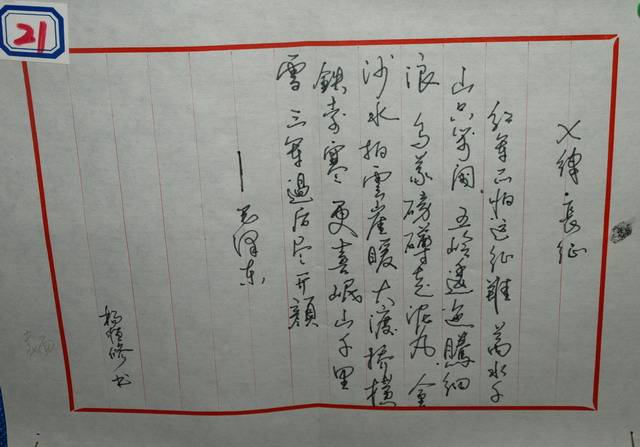 21
七律·长征
红军不怕远征难 萬水千
山只等闲 五岭逶迤騰细
浪 乌蒙磅礴走泥丸 金
沙水拍雲崖暖 大渡桥横
鉄索寒 更喜岷山千里
雪 三军過后尽开颜
——毛泽东
杨恒修书